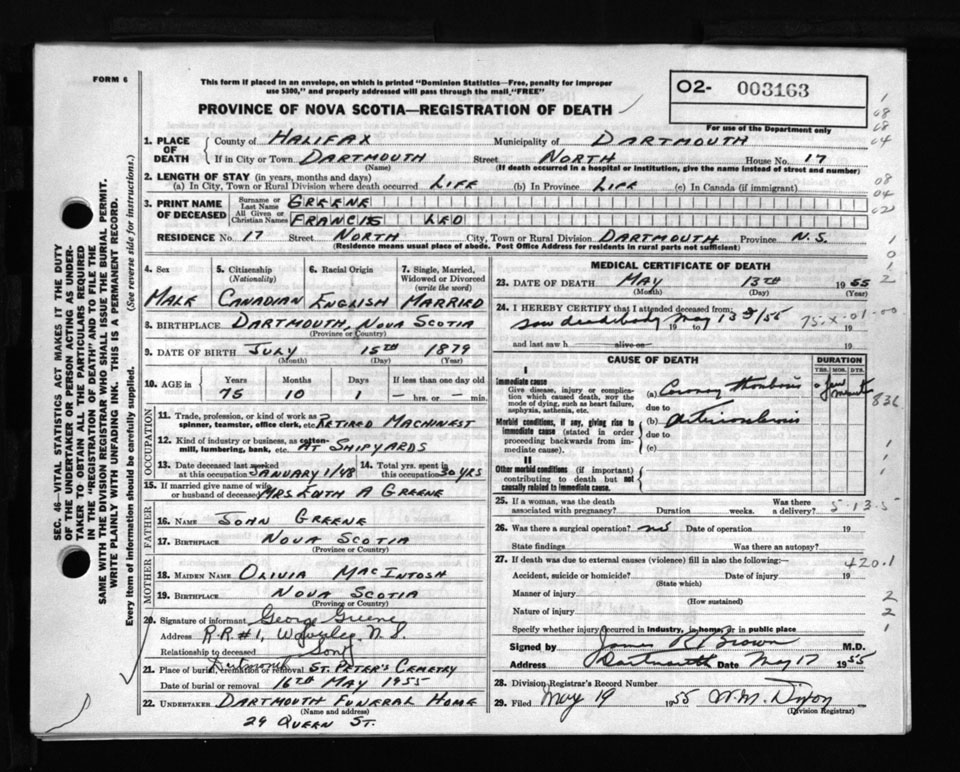 FORM 6
This form if placed in an envelope, on which is printed "Dominion Statistics—Free, penalty for improper
use $300," and properly addressed will pass through the mail, "FREE"
PROVINCE OF NOVA SCOTIA—REGISTRATION OF DEATH
O2- 003163
For use of the Department only
1. PLACE OF DEATH
County of HALIFAX Municipality of DARTMOUTH
If in City or Town DARTMOUTH Street NORTH House No. 17
(Name) (If death occurred in a hospital or institution, give the name instead of street and number)
2. LENGTH OF STAY (in years, months and days)
(a) In City, Town or Rural Division where death occurred LIFE (b) In Province LIFE (c) In Canada (if immigrant)
3. PRINT NAME OF DECEASED
Surname or Last Name GREENE
All Given or Christian Names FRANCIS LEO
RESIDENCE No. 17 Street NORTH City, Town or Rural Division DARTMOUTH Province N.S.
(Residence means usual place of abode. Post Office Address for residents in rural parts not sufficient)
4. Sex MALE
5. Citizenship (Nationality) CANADIAN
6. Racial Origin ENGLISH
7. Single, Married, Widowed or Divorced (write the word) MARRIED
8. BIRTHPLACE DARTMOUTH, NOVA SCOTIA
(Province or Country)
9. DATE OF BIRTH JULY 15TH 1879
(Month) (Day) (Year)
10. AGE in Years 75 Months 10 Days 1 If less than one day old — hrs. or — min.
OCCUPATION
11. Trade, profession, or kind of work as spinner, teamster, office clerk, etc. RETIRED MACHINEST
12. Kind of industry or business, as cotton-mill, lumbering, bank, etc. AT SHIPYARDS
13. Date deceased last worked at this occupation JANUARY 1/48 14. Total yrs. spent in this occupation 30 YRS
15. If married give name of wife or husband of deceased MRS. EDITH A GREENE
FATHER
16. NAME JOHN GREENE
17. BIRTHPLACE NOVA SCOTIA
(Province or Country)
MOTHER
18. MAIDEN NAME OLIVIA MACINTOSH
19. BIRTHPLACE NOVA SCOTIA
(Province or Country)
20. Signature of informant George Greene
Address R.R.#1, Waverley, N.S.
Relationship to deceased Son
21. Place of burial, cremation or removal Dartmouth ST. PETER'S CEMETRY
Date of burial or removal 16TH MAY 1955
22. UNDERTAKER DARTMOUTH FUNERAL HOME
(Name and address)
29 QUEEN ST.
MEDICAL CERTIFICATE OF DEATH
23. DATE OF DEATH MAY 13TH 1955
(Month) (Day) (Year)
24. I HEREBY CERTIFY that I attended deceased from:
saw dead body May 13/55 19 to 19
75-X-01-00
and last saw h alive on 19
CAUSE OF DEATH DURATION
YRS. MOS. DYS.
I
Immediate cause
Give disease, injury or complication which caused death, NOT the mode of dying, such as heart failure, asphyxia, asthenia, etc.
(a) Coronary Thrombosis few minutes
due to
Morbid conditions, if any, giving rise to immediate cause (stated in order proceeding backwards from immediate cause).
(b)
due to
(c)
II
Other morbid conditions (if important) contributing to death but not causally related to immediate cause.
25. If a woman, was the death associated with pregnancy? Duration weeks. Was there a delivery?
5-13-5
26. Was there a surgical operation? no Date of operation 19
State findings Was there an autopsy?
27. If death was due to external causes (violence) fill in also the following:—
420.1
Accident, suicide or homicide? Date of injury 19
(State which)
Manner of injury
(How sustained)
Nature of injury
Specify whether injury occurred in industry, in home, or in public place
Signed by James R Brown M.D.
Address Dartmouth Date May 17 1955
28. Division Registrar's Record Number
29. Filed May 19 1955 W.M. Dixon
(Division Registrar)
SEC. 46—VITAL STATISTICS ACT MAKES IT THE DUTY
OF THE UNDERTAKER OR PERSON ACTING AS UNDER-
TAKER TO OBTAIN ALL THE PARTICULARS REQUIRED
IN THE "REGISTRATION OF DEATH" AND TO FILE THE
SAME WITH THE DIVISION REGISTRAR WHO SHALL ISSUE THE BURIAL PERMIT.
WRITE PLAINLY WITH UNFADING INK. THIS IS A PERMANENT RECORD.
Every item of information should be carefully supplied. (See reverse side for instructions.)